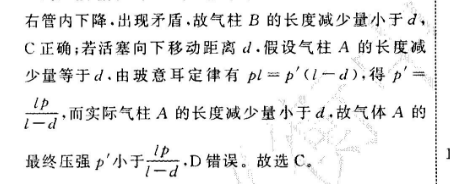 右管内下降,出现矛盾,故气柱 B 的长度减少量小于 d,
C 正确;若活塞向下移动距离 d,假设气柱 A 的长度减
少量等于 d,由玻意耳定律有 pl=p′(l-d),得 p′=
lp/(l-d),而实际气柱 A 的长度减少量小于 d,故气体 A 的
最终压强 p′小于lp/(l-d),D 错误。故选 C。